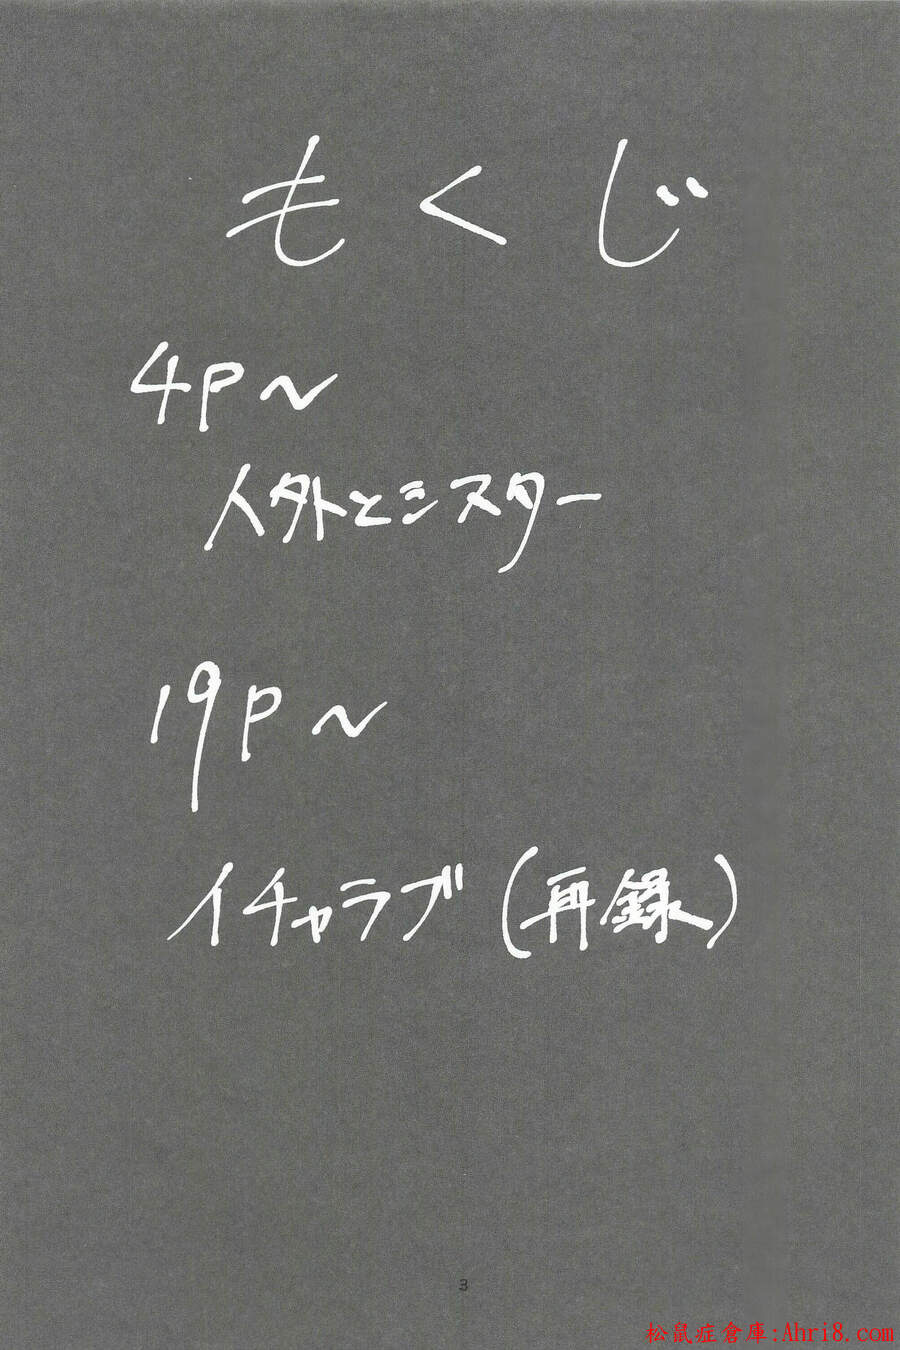 もくじ
4P〜
人外とシスター
19P〜
イチャラブ(再録)
3
松鼠症倉庫:Ahri8.com